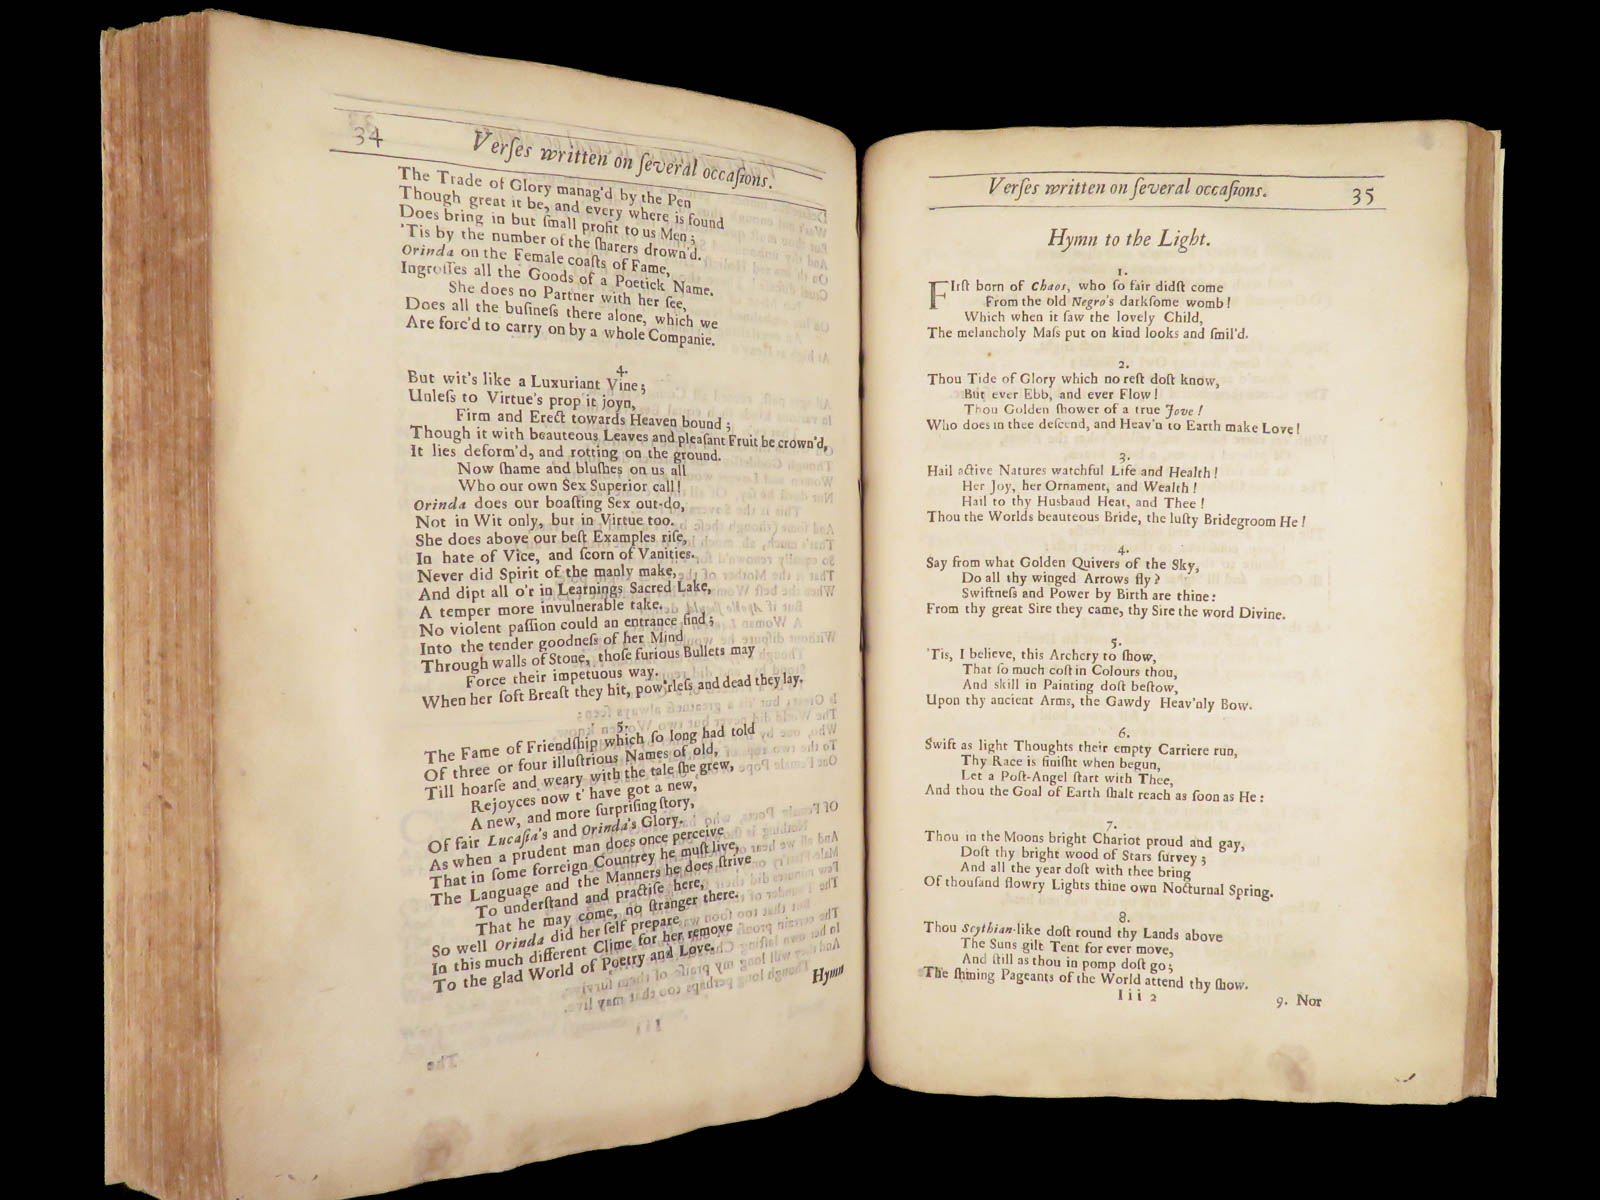 34
Verſes written on ſeveral occaſions.
The Trade of Glory manag'd by the Pen
Though great it be, and every where is found
Does bring in but ſmall profit to us Men;
'Tis by the number of the ſharers drown'd.
Orinda on the Female coaſts of Fame,
Ingroſſes all the Goods of a Poetick Name.
She does no Partner with her ſee,
Does all the buſineſs there alone, which we
Are forc'd to carry on by a whole Companie.
4.
But wit's like a Luxuriant Vine;
Unleſs to Virtue's prop it joyn,
Firm and Erect towards Heaven bound;
Though it with beauteous Leaves and pleaſant Fruit be crown'd,
It lies deform'd, and rotting on the ground.
Now ſhame and bluſhes on us all
Who our own Sex Superior call!
Orinda does our boaſting Sex out-do,
Not in Wit only, but in Virtue too.
She does above our beſt Examples riſe,
In hate of Vice, and ſcorn of Vanities.
Never did Spirit of the manly make,
And dipt all o'r in Learnings Sacred Lake,
A temper more invulnerable take.
No violent paſſion could an entrance find;
Into the tender goodneſs of her Mind
Through walls of Stone, thoſe furious Bullets may
Force their impetuous way.
When her ſoft Breaſt they hit, pow'rleſs and dead they lay.
5.
The Fame of Friendſhip which ſo long had told
Of three or four illuſtrious Names of old,
Till hoarſe and weary with the tale ſhe grew,
Rejoyces now t' have got a new,
A new, and more ſurpriſing ſtory,
Of fair Lucaſia's and Orinda's Glory.
As when a prudent man does once perceive
That in ſome forreign Countrey he muſt live,
The Language and the Manners he does ſtrive
To underſtand and practiſe here,
That he may come, no ſtranger there.
So well Orinda did her ſelf prepare
In this much different Clime for her remove
To the glad World of Poetry and Love.
Hymn
Verſes written on ſeveral occaſions.
35
Hymn to the Light.
1.
FIrſt born of Chaos, who ſo fair didſt come
From the old Negro's darkſome womb!
Which when it ſaw the lovely Child,
The melancholy Maſs put on kind looks and ſmil'd.
2.
Thou Tide of Glory which no reſt doſt know,
But ever Ebb, and ever Flow!
Thou Golden ſhower of a true Jove!
Who does in thee deſcend, and Heav'n to Earth make Love!
3.
Hail active Natures watchful Life and Health!
Her Joy, her Ornament, and Wealth!
Hail to thy Husband Heat, and Thee!
Thou the Worlds beauteous Bride, the luſty Bridegroom He!
4.
Say from what Golden Quivers of the Sky,
Do all thy winged Arrows fly?
Swiftneſs and Power by Birth are thine:
From thy great Sire they came, thy Sire the word Divine.
5.
'Tis, I believe, this Archery to ſhow,
That ſo much coſt in Colours thou,
And skill in Painting doſt beſtow,
Upon thy ancient Arms, the Gawdy Heav'nly Bow.
6.
Swift as light Thoughts their empty Carriere run,
Thy Race is finiſht when begun,
Let a Poſt-Angel ſtart with Thee,
And thou the Goal of Earth ſhalt reach as ſoon as He:
7.
Thou in the Moons bright Chariot proud and gay,
Doſt thy bright wood of Stars ſurvey;
And all the year doſt with thee bring
Of thouſand flowry Lights thine own Nocturnal Spring.
8.
Thou Scythian-like doſt round thy Lands above
The Suns gilt Tent for ever move,
And ſtill as thou in pomp doſt go;
The ſhining Pageants of the World attend thy ſhow.
Iii 2
9. Nor